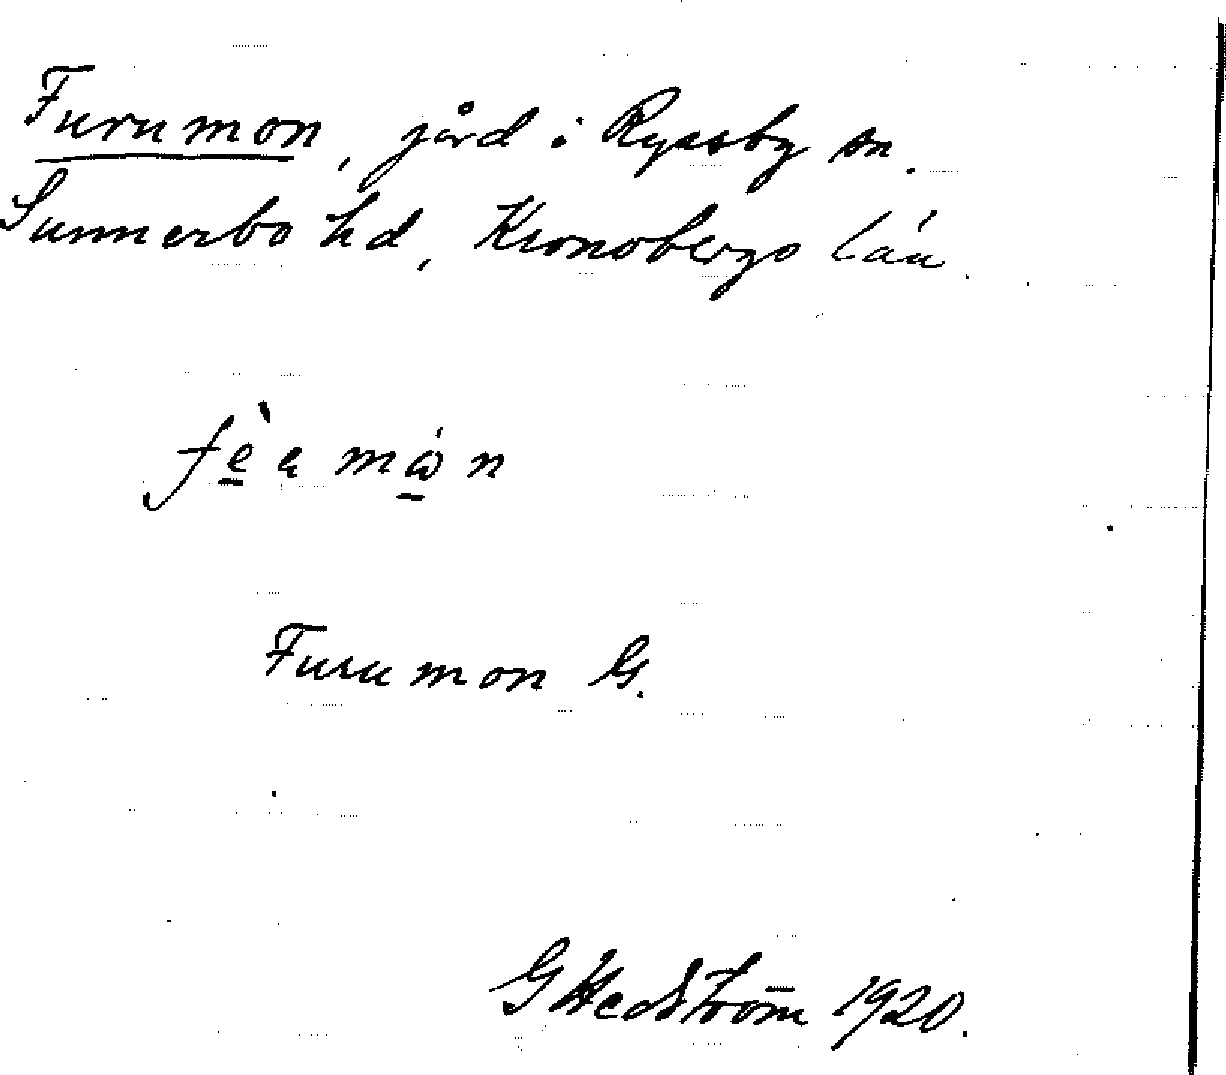 Furumon, gård i Ryssby sn.
Sunnerbo hd, Kronobergs län.
Furumon G.
G Hedström 1920.